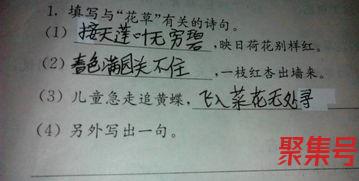 1. 填写与“花草”有关的诗句。
(1) 接天莲叶无穷碧，映日荷花别样红。
(2) 春色满园关不住，一枝红杏出墙来。
(3) 儿童急走追黄蝶，飞入菜花无处寻
(4) 另外写出一句。
聚集号